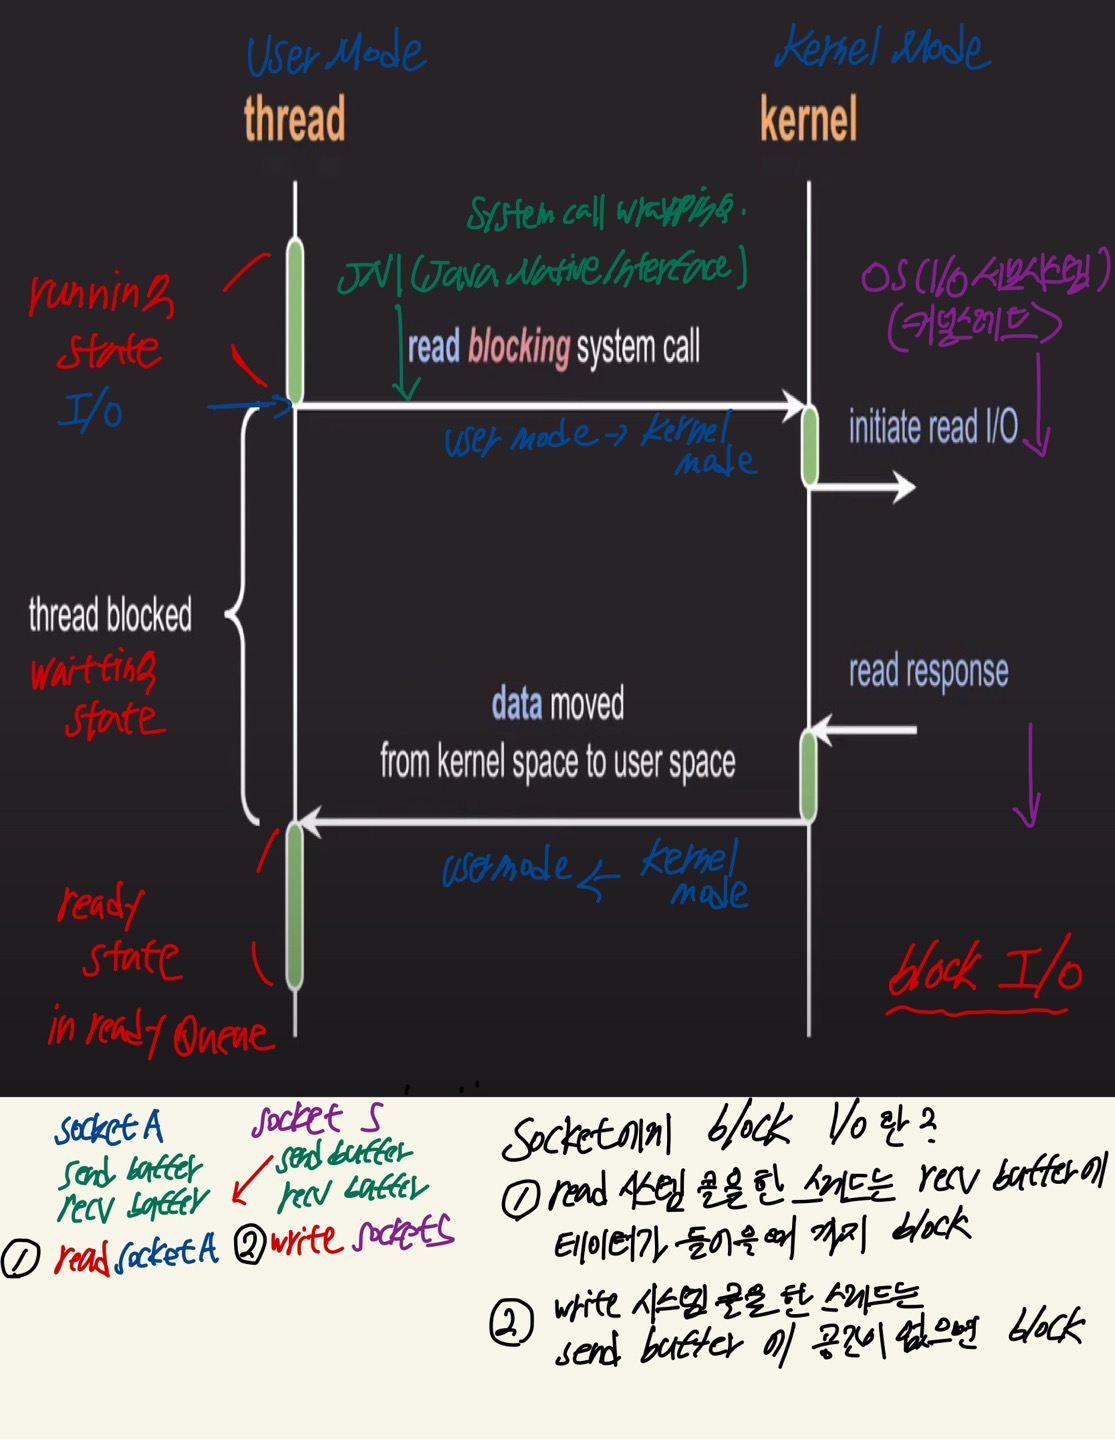 User Mode
Kernel Mode
thread
kernel
System call wrapping.
JNI (Java Native Interface)
running
state
I/O
OS(I/O 서브시스템)
(커널스레드)
read blocking system call
user mode → kernel
mode
initiate read I/O
thread blocked
waitting
state
read response
data moved
from kernel space to user space
usermode ← kernel
mode
ready
state
in ready Queue
block I/O
socket A
send buffer
recv buffer
① read socket A
socket S
send buffer
recv buffer
② write socket S
Socket에서 block I/O 란?
① read 시스템 콜을 한 스레드는 recv buffer에
데이터가 들어올때 까지 block
② write 시스템 콜을 한 스레드는
send buffer 에 공간이 없으면 block